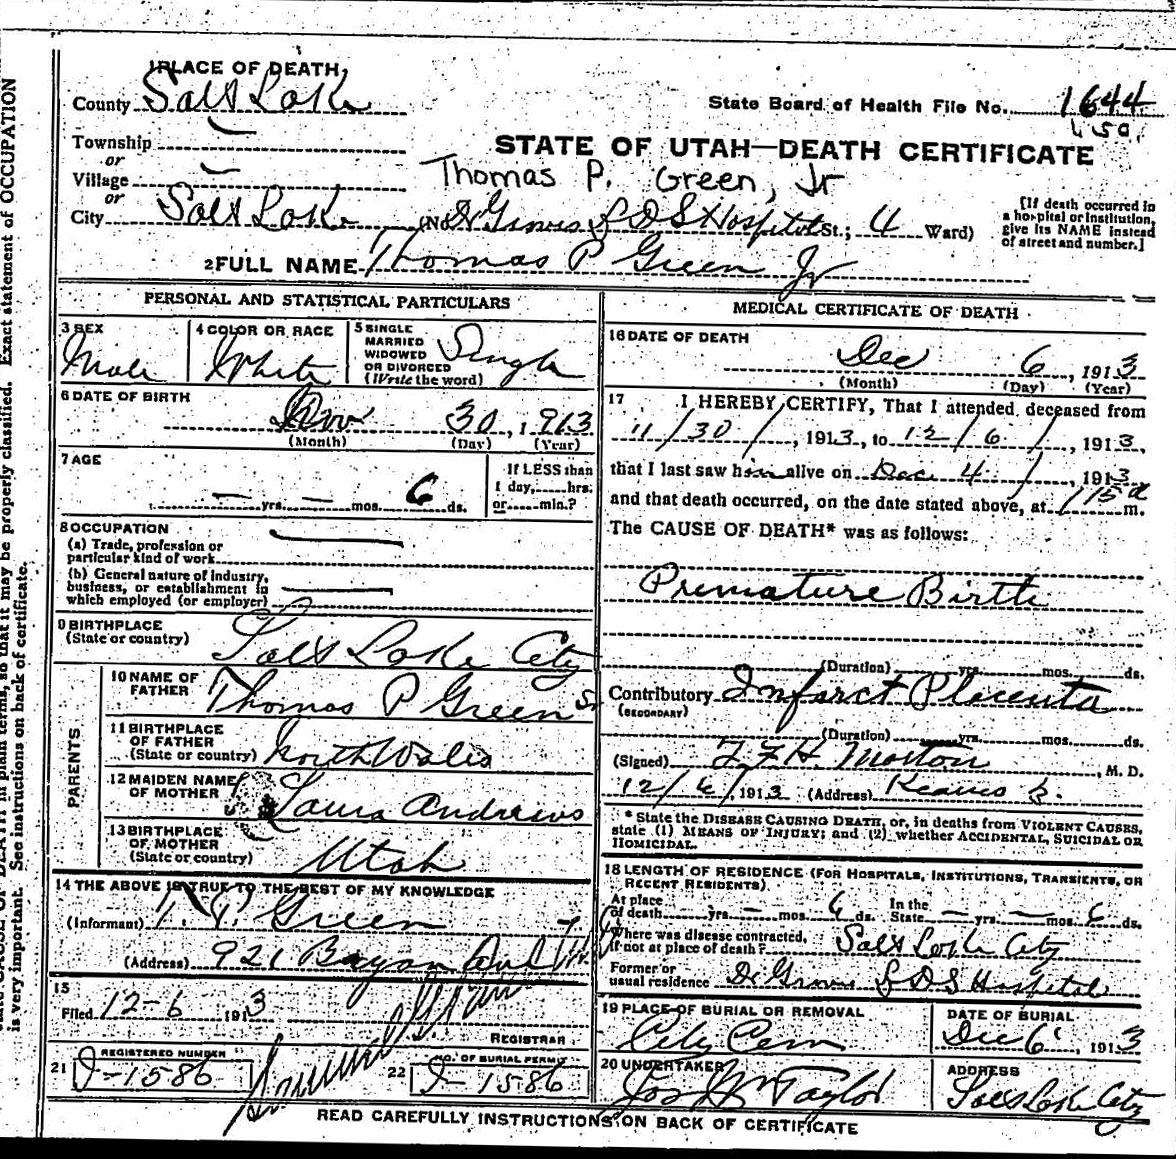 1 PLACE OF DEATH
County Salt Lake
State Board of Health File No. 1644
Township
or
Village
or
STATE OF UTAH—DEATH CERTIFICATE
Thomas P. Green, Jr
City Salt Lake (No Dr Groves L D S Hospital St.; 4 Ward)
[If death occurred in
a hospital or institution,
give its NAME instead
of street and number.]
2 FULL NAME Thomas P Green Jr
PERSONAL AND STATISTICAL PARTICULARS
3 SEX
Male
4 COLOR OR RACE
White
5 SINGLE
MARRIED
WIDOWED
OR DIVORCED
(Write the word)
Single
6 DATE OF BIRTH
Nov 30, 1913
(Month) (Day) (Year)
7 AGE
— yrs. — mos. 6 ds.
If LESS than
1 day, hrs.
or min.?
8 OCCUPATION
(a) Trade, profession or
particular kind of work
(b) General nature of industry,
business, or establishment in
which employed (or employer)
9 BIRTHPLACE
(State or country)
Salt Lake City
PARENTS
10 NAME OF
FATHER
Thomas P Green Sr
11 BIRTHPLACE
OF FATHER
(State or country)
North Wales
12 MAIDEN NAME
OF MOTHER
Laura Andrews
13 BIRTHPLACE
OF MOTHER
(State or country)
Utah
14 THE ABOVE IS TRUE TO THE BEST OF MY KNOWLEDGE
(Informant) T. P. Green
(Address) 921 Bryan Ave
15
Filed 12-6 1913
REGISTRAR
21
REGISTERED NUMBER
J-1586
22
NO. OF BURIAL PERMIT
J-1586
MEDICAL CERTIFICATE OF DEATH
16 DATE OF DEATH
Dec 6, 1913
(Month) (Day) (Year)
17 I HEREBY CERTIFY, That I attended deceased from
11/30/, 1913, to 12/6/, 1913,
that I last saw him alive on Dec 4/, 1913
and that death occurred, on the date stated above, at 115 a m.
The CAUSE OF DEATH* was as follows:
Premature Birth
(Duration) yrs. mos. ds.
Contributory Infarct Placenta
(SECONDARY)
(Duration) yrs. mos. ds.
(Signed) T F H Morton, M. D.
12/6, 1913 (Address) Kearns B.
* State the DISEASE CAUSING DEATH, or, in deaths from VIOLENT CAUSES,
state (1) MEANS OF INJURY; and (2) whether ACCIDENTAL, SUICIDAL OR
HOMICIDAL.
18 LENGTH OF RESIDENCE (FOR HOSPITALS, INSTITUTIONS, TRANSIENTS, OR
RECENT RESIDENTS)
At place
of death yrs. — mos. 6 ds.
In the
State — yrs. — mos. 6 ds.
Where was disease contracted,
if not at place of death? Salt Lake City
Former or
usual residence Dr Groves L D S Hospital
19 PLACE OF BURIAL OR REMOVAL
City Cem
DATE OF BURIAL
Dec 6, 1913
20 UNDERTAKER
Jos Wm Taylor
ADDRESS
Salt Lake City
READ CAREFULLY INSTRUCTIONS ON BACK OF CERTIFICATE
so that it may be properly classified. Exact statement of OCCUPATION
is very important. See instructions on back of certificate.